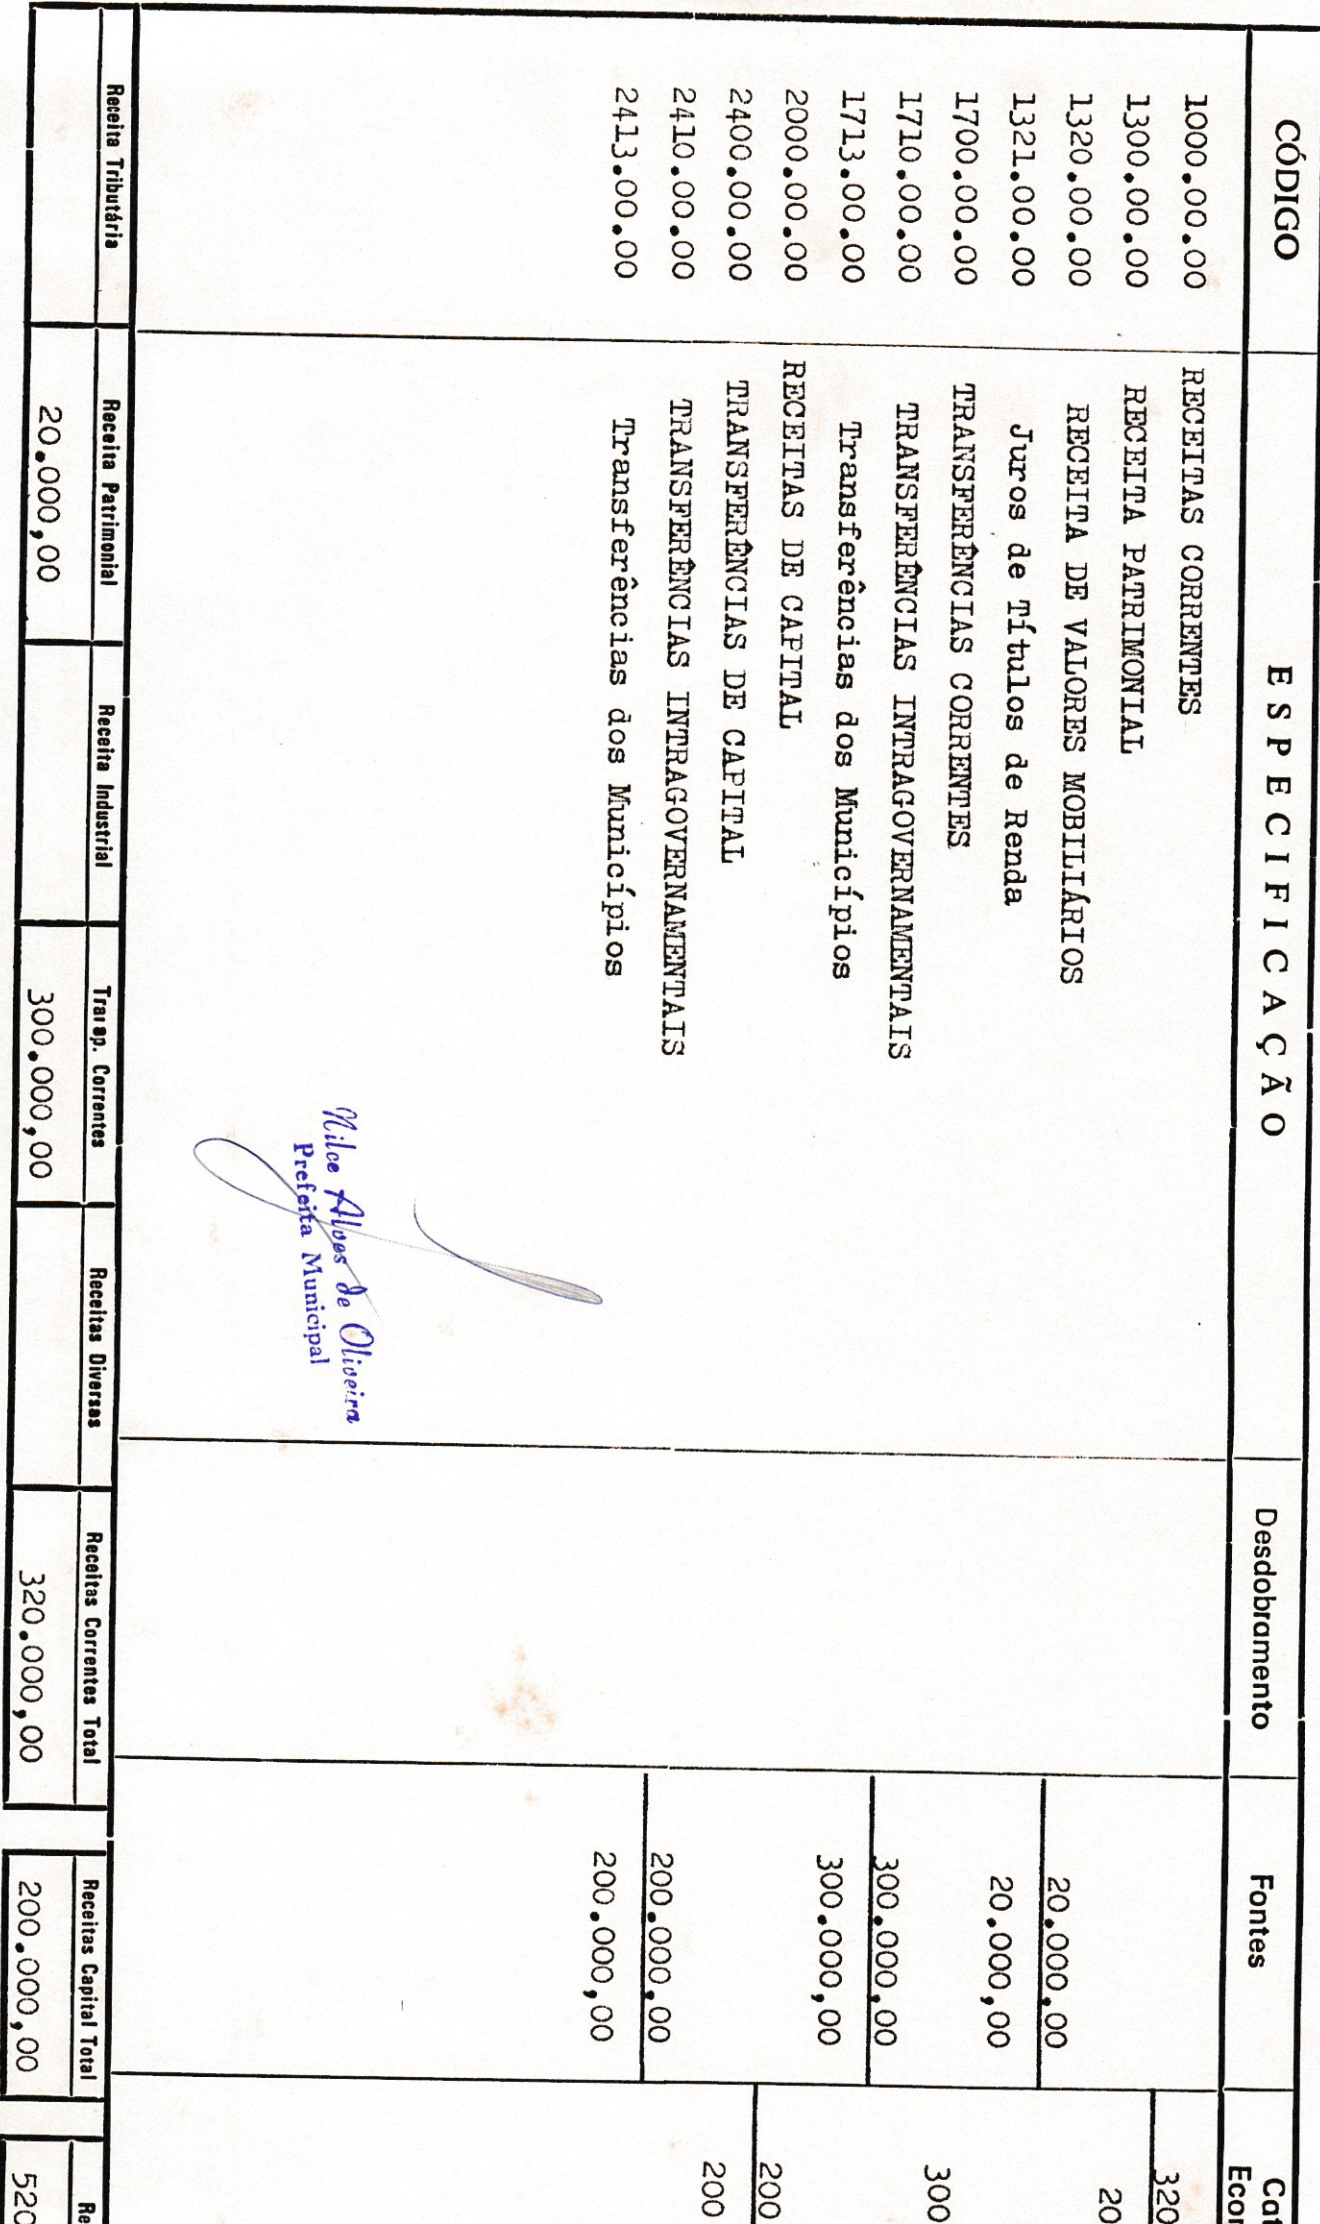 CÓDIGO ESPECIFICAÇÃO Desdobramento Fontes
1000.00.00 RECEITAS CORRENTES 320
1300.00.00 RECEITA PATRIMONIAL 20
1320.00.00 RECEITA DE VALORES MOBILIÁRIOS 20.000,00
1321.00.00 Juros de Títulos de Renda 20.000,00
1700.00.00 TRANSFERÊNCIAS CORRENTES 300
1710.00.00 TRANSFERÊNCIAS INTRAGOVERNAMENTAIS 300.000,00
1713.00.00 Transferências dos Municípios 300.000,00
2000.00.00 RECEITAS DE CAPITAL 200
2400.00.00 TRANSFERÊNCIAS DE CAPITAL 200
2410.00.00 TRANSFERÊNCIAS INTRAGOVERNAMENTAIS 200.000,00
2413.00.00 Transferências dos Municípios 200.000,00
Nilce Alves de Oliveira
Prefeita Municipal
Receita Tributária Receita Patrimonial Receita Industrial Transp. Correntes Receitas Diversas Receitas Correntes Total Receitas Capital Total
20.000,00 300.000,00 320.000,00 200.000,00 520